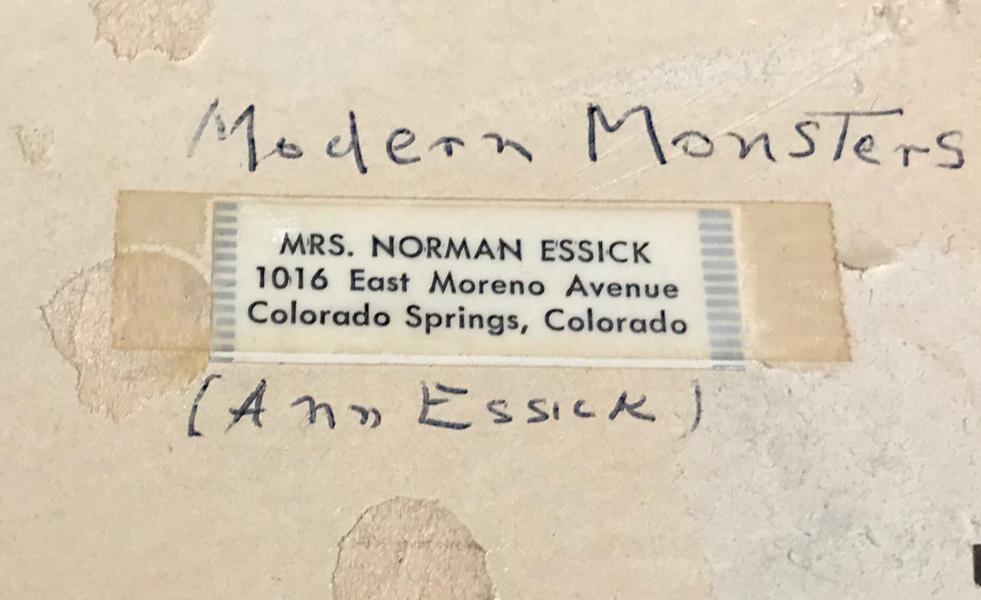 Modern Monsters
MRS. NORMAN ESSICK
1016 East Moreno Avenue
Colorado Springs, Colorado
(Ann Essick)